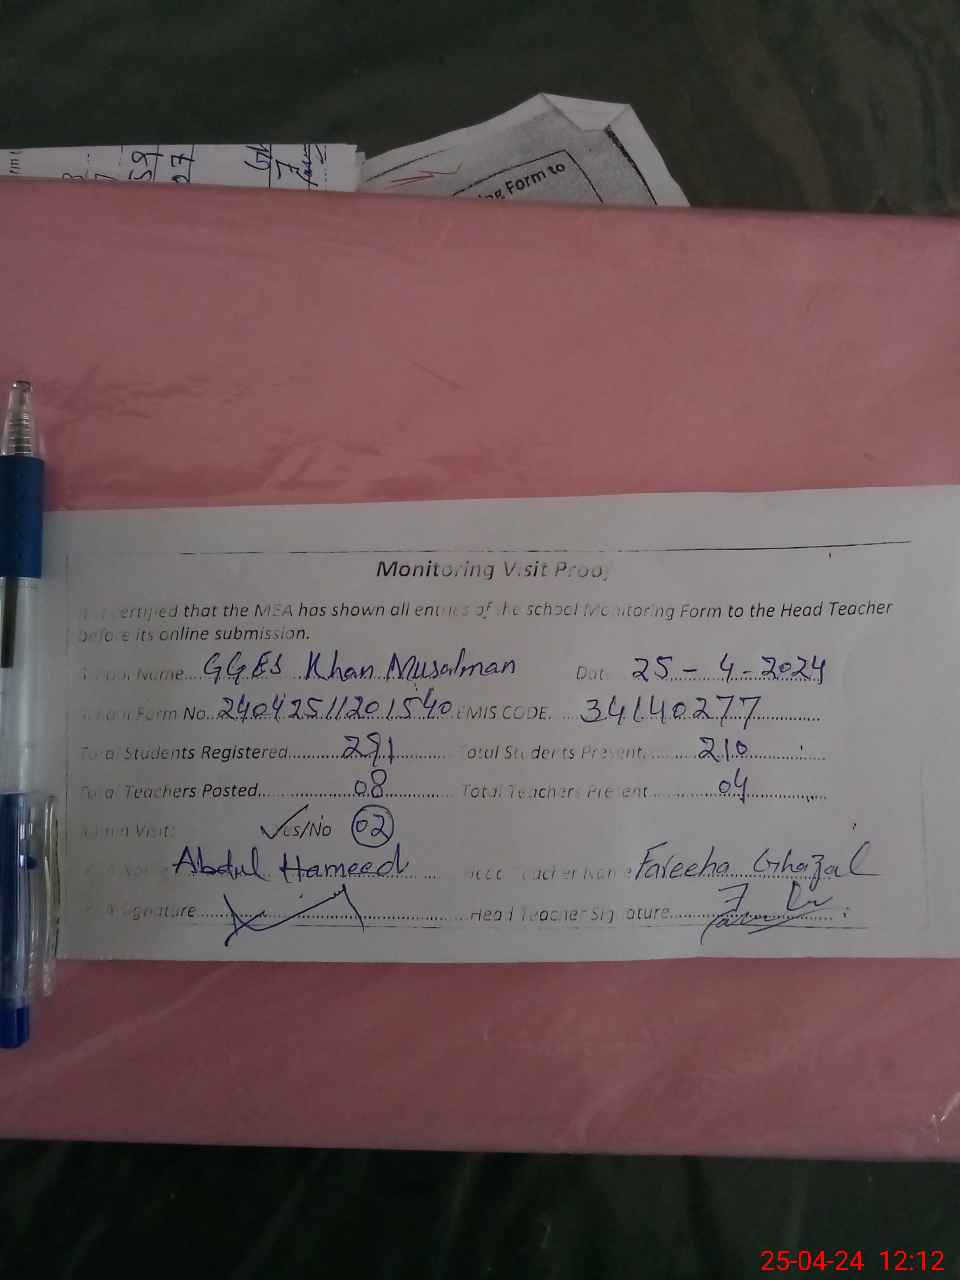 59
27
ng Form to
Monitoring Visit Proof
certified that the MEA has shown all entries of the school Monitoring Form to the Head Teacher
before its online submission.
School Name...GGES Khan Musalman Date 25-4-2024
School Form No..24042511201540 EMIS CODE....34140277
Total Students Registered.......291 Total Students Present......210
Total Teachers Posted.......08 Total Teachers Present.....04
Admin Visit: Yes/No 02
Abdul Hameed Head Teacher Name Fareeha Ghazal
Signature........ Head Teacher Signature........
25-04-24 12:12